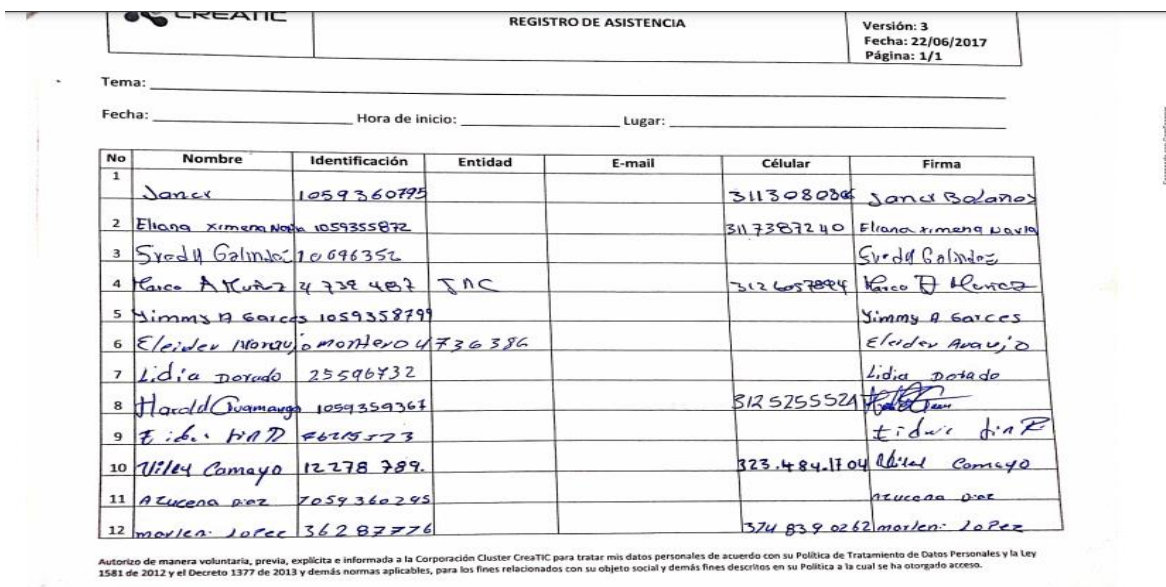 CREATIC
REGISTRO DE ASISTENCIA
Versión: 3
Fecha: 22/06/2017
Página: 1/1
Tema:
Fecha: Hora de inicio: Lugar:
No Nombre Identificación Entidad E-mail Célular Firma
1 Jancy 1059360795 Jancy Bolaños
2 Eliana Ximena 1059355872 3117387240 Eliana Ximena
3 Galindez 10696352 Galindez
4 Marco A Muñoz 4 739 487 JAC Marco A Muñoz
5 Yimmy A Garces 1059358799 Yimmy A Garces
6 Eleider montero 4736386 Eleider Araujo
7 Lidia Dorado 25596732 Lidia Dorado
8 Harold Guamanga 1059359367 3125255524
9
10 Camayo 12278 789. 323.484.1704 Camayo
11 Azucena Diaz 1059360295 Azucena Diaz
12 marlen. Lopez 36287776 marlen. Lopez
Autorizo de manera voluntaria, previa, explícita e informada a la Corporación Cluster CreaTIC para tratar mis datos personales de acuerdo con su Política de Tratamiento de Datos Personales y la Ley
1581 de 2012 y el Decreto 1377 de 2013 y demás normas aplicables, para los fines relacionados con su objeto social y demás fines descritos en su Política a la cual se ha otorgado acceso.